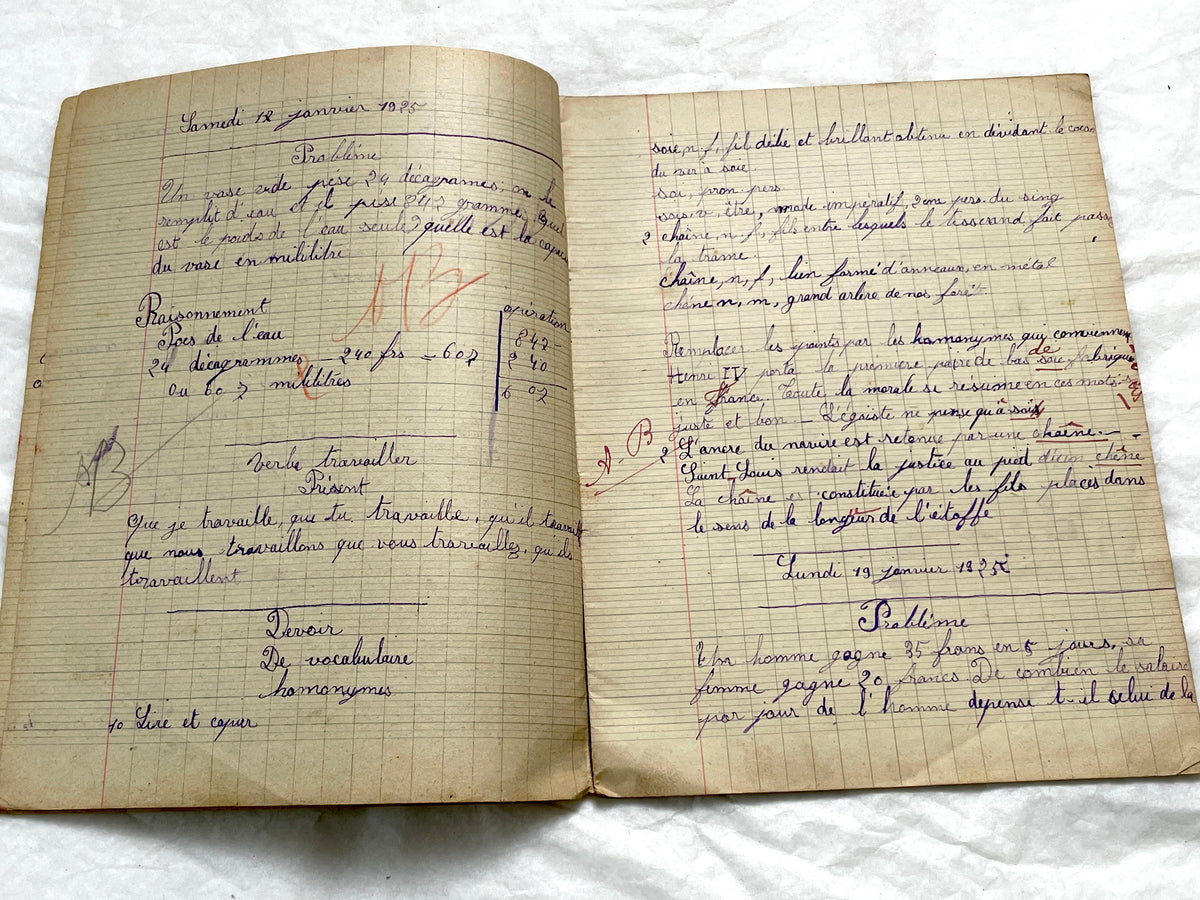 Samedi 12 janvier 1925
Problème
Un vase vide pèse 24 décagrames, on le
remplit d'eau et il pèse 842 gramme, quel
est le poids de l'eau seule? quelle est la capac
du vase en mililitre
AB
Raisonnement
Poes de l'eau
24 décagrammes — 240 frs = 602
ou 602 mililitres
opération
842 -
240
602
AB
Verbe travailler
Présent
Que je travaille, que tu travaille, qu'il travaill
que nous travaillons que vous travailles, qu'ils
travaillent
Devoir
De vocabulaire
homonymes
1o Lire et copier
soie, n. f, fil délié et brillant obtenu en dévidant le cocon
du ver à soie
soi, pron pers
sois v. être, mode impératif, 2me pers. du sing
2 chaîne, n. f, fils entre lesquels le tisserand fait passe
la trame.
chaîne, n, f, lien formé d'anneaux, en métal
chêne n, m, grand arbre de nos forêt.
Remplaces les points par les homonymes qui conviennen
Henri IV porta la première paire de bas de soie fabriqué
en France. Toute la morale se résume en ces mots: s
juste et bon — L'égoïste ne pense qu'à sois
A-B
2 L'ancre du navire est retenue par une chaîne. —
Saint-Louis rendait la justice au pied d'un chêne
La chaîne es constituée par les fils placés dans
le sens de la longeur de l'étoffe
Lundi 19 janvier 1925
Problème
Un homme gagne 35 frans en 5 jours, sa
femme gagne 20 francs De combien le salaire
par jour de l'homme depense t-il selui de la